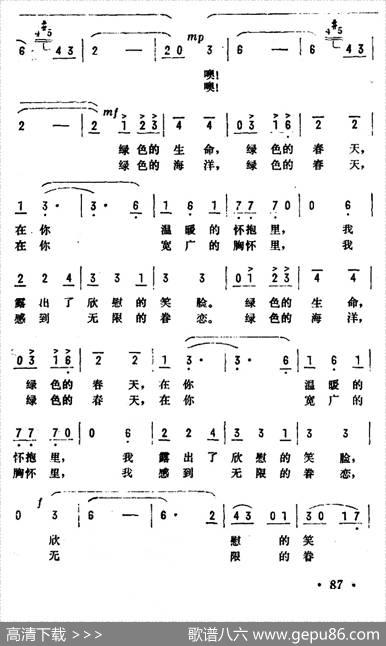 #4 5 #4 5
6 4 3 | 2 — | 2 0 3 | 6 — | 6 4 3
mp
噢!
噢!
mf
2 — | 2 1 2 3 | 4 4 | 0 3 1 6 | 2 2
绿色的 生 命, 绿色的 春 天,
绿色的 海 洋, 绿色的 春 天,
1 3 · | 3 · 6 | 1 6 1 | 7 7 7 0 | 0 6
在你 温暖的 怀抱里, 我
在你 宽广的 胸怀里, 我
2 2 4 | 3 3 1 | 3 3 | 0 1 2 3 | 4 4
露出了 欣慰的 笑 脸。 绿色的 生 命,
感到 无限的 眷 恋。 绿色的 海 洋,
0 3 1 6 | 2 2 | 1 3 · | 3 · 6 | 1 6 1
绿色的 春 天, 在你 温暖的
绿色的 春 天, 在你 宽广的
7 7 7 0 | 0 6 | 2 2 4 | 3 3 1 | 3 3
怀抱里, 我 露出了 欣慰的 笑 脸,
胸怀里, 我 感到 无限的 眷 恋,
f
0 3 | 6 — | 6 · 2 | 4 3 0 1 | 3 0 1 7
欣 慰 的 笑
无 限 的 眷
· 87 ·
高清下载 >>> 歌谱八六 www.gepu86.com